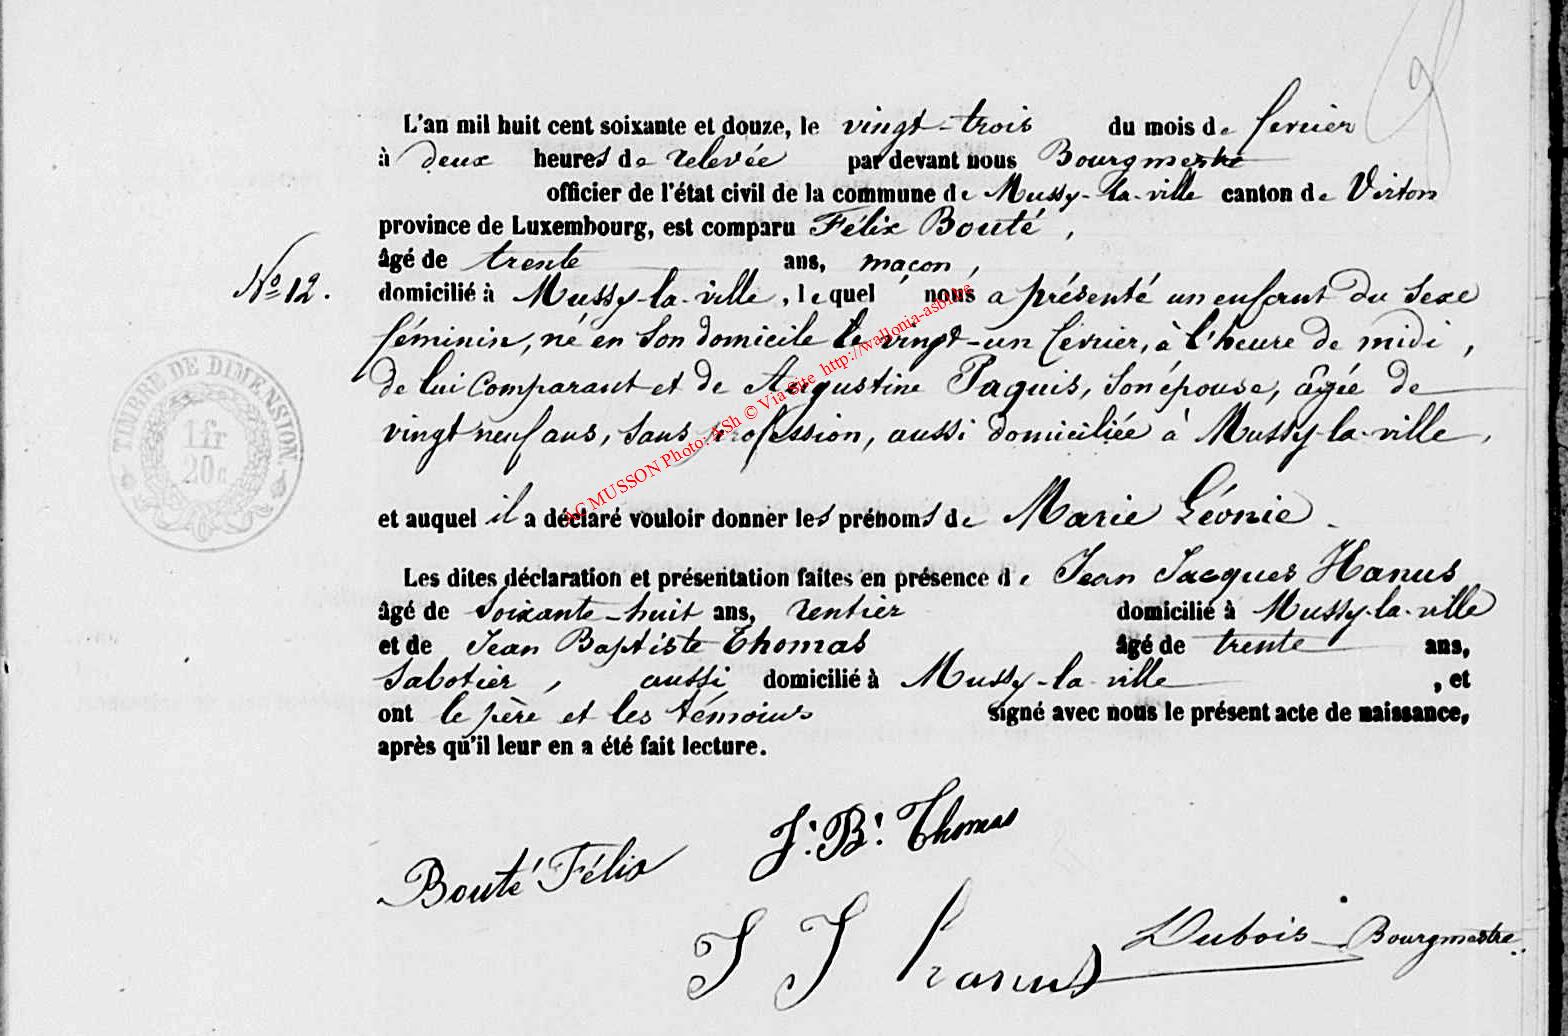 L'an mil huit cent soixante et douze, le vingt-trois du mois de fevrier
à deux heures de relevée par devant nous Bourgmestre
officier de l'état civil de la commune de Mussy-la-ville canton de Virton
province de Luxembourg, est comparu Félix Bouté,
âgé de trente ans, maçon,
No 12. domicilié à Mussy-la-ville, lequel nous a présenté un enfant du sexe
féminin, né en son domicile le vingt-un fevrier, à l'heure de midi,
de lui comparant et de Augustine Paquis, son épouse, âgée de
vingt neuf ans, sans profession, aussi domiciliée à Mussy-la-ville,
et auquel il a déclaré vouloir donner les prénoms de Marie Léonie.
Les dites déclaration et présentation faites en présence de Jean Jacques Hanus
âgé de soixante-huit ans, rentier domicilié à Mussy-la-ville
et de Jean Baptiste Thomas âgé de trente ans,
sabotier, aussi domicilié à Mussy-la-ville, et
ont le père et les témoins signé avec nous le présent acte de naissance,
après qu'il leur en a été fait lecture.
J. B. Thomas
Bouté Félix
J J hanus
Dubois Bourgmestre.
TIMBRE DE DIMENSION
1 fr
20 c
AC MUSSON Photo: ASh © Via Site http://wallonia-asbl.be